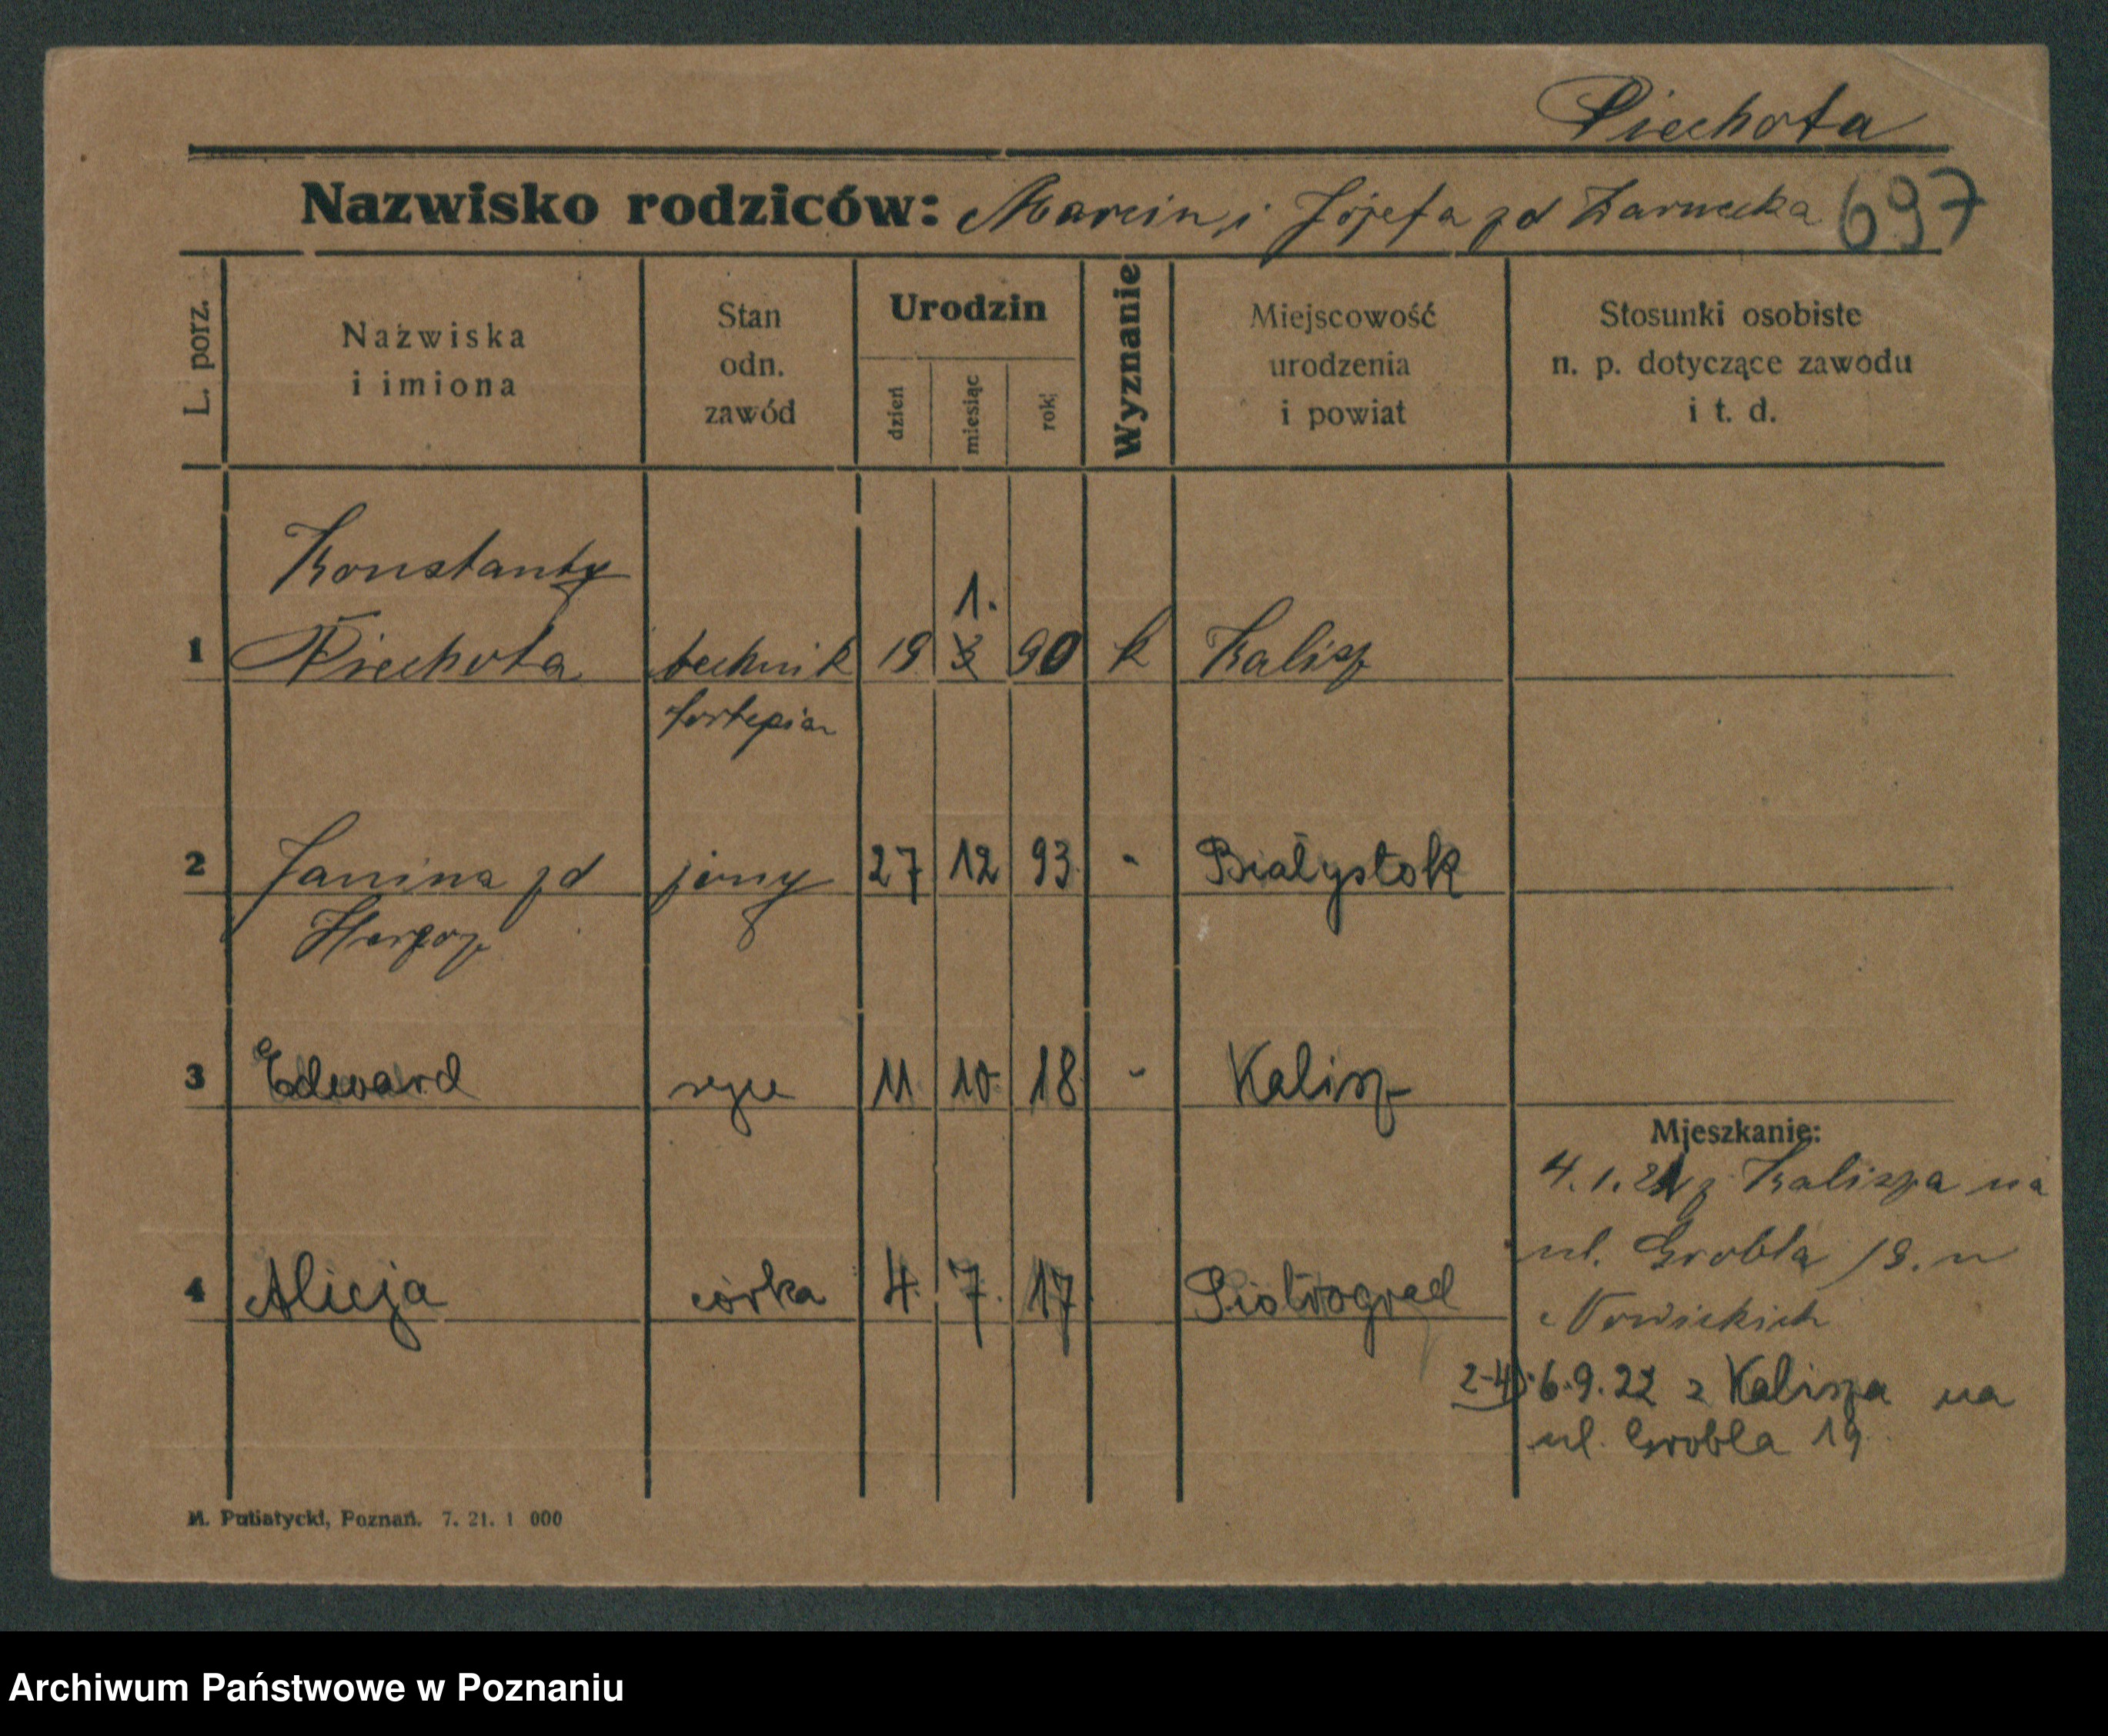 Piechota
Nazwisko rodziców: Marcin i Józefa zd Żarnecka 697
L. porz.
Nazwiska
i imiona
Stan
odn.
zawód
Urodzin
dzień
miesiąc
rok
Wyznanie
Miejscowość
urodzenia
i powiat
Stosunki osobiste
n. p. dotyczące zawodu
i t. d.
Konstanty
1.
1 Piechota technik 19 3 90 k Kalisz
fortepian
2 Janina zd żony 27 12 93. " Białystok
Hercog
3 Edward syn 11 10 18. " Kalisz
Mjeszkanie:
4.1.21 z Kalisza na
ul. Grobla 18. u
4 Alicja córka 4. 7. 17 Piotrogrod
Nowickich
2-4). 6.9.22 z Kalisza na
ul. Grobla 19.
M. Putiatycki, Poznań. 7. 21. 1 000
Archiwum Państwowe w Poznaniu